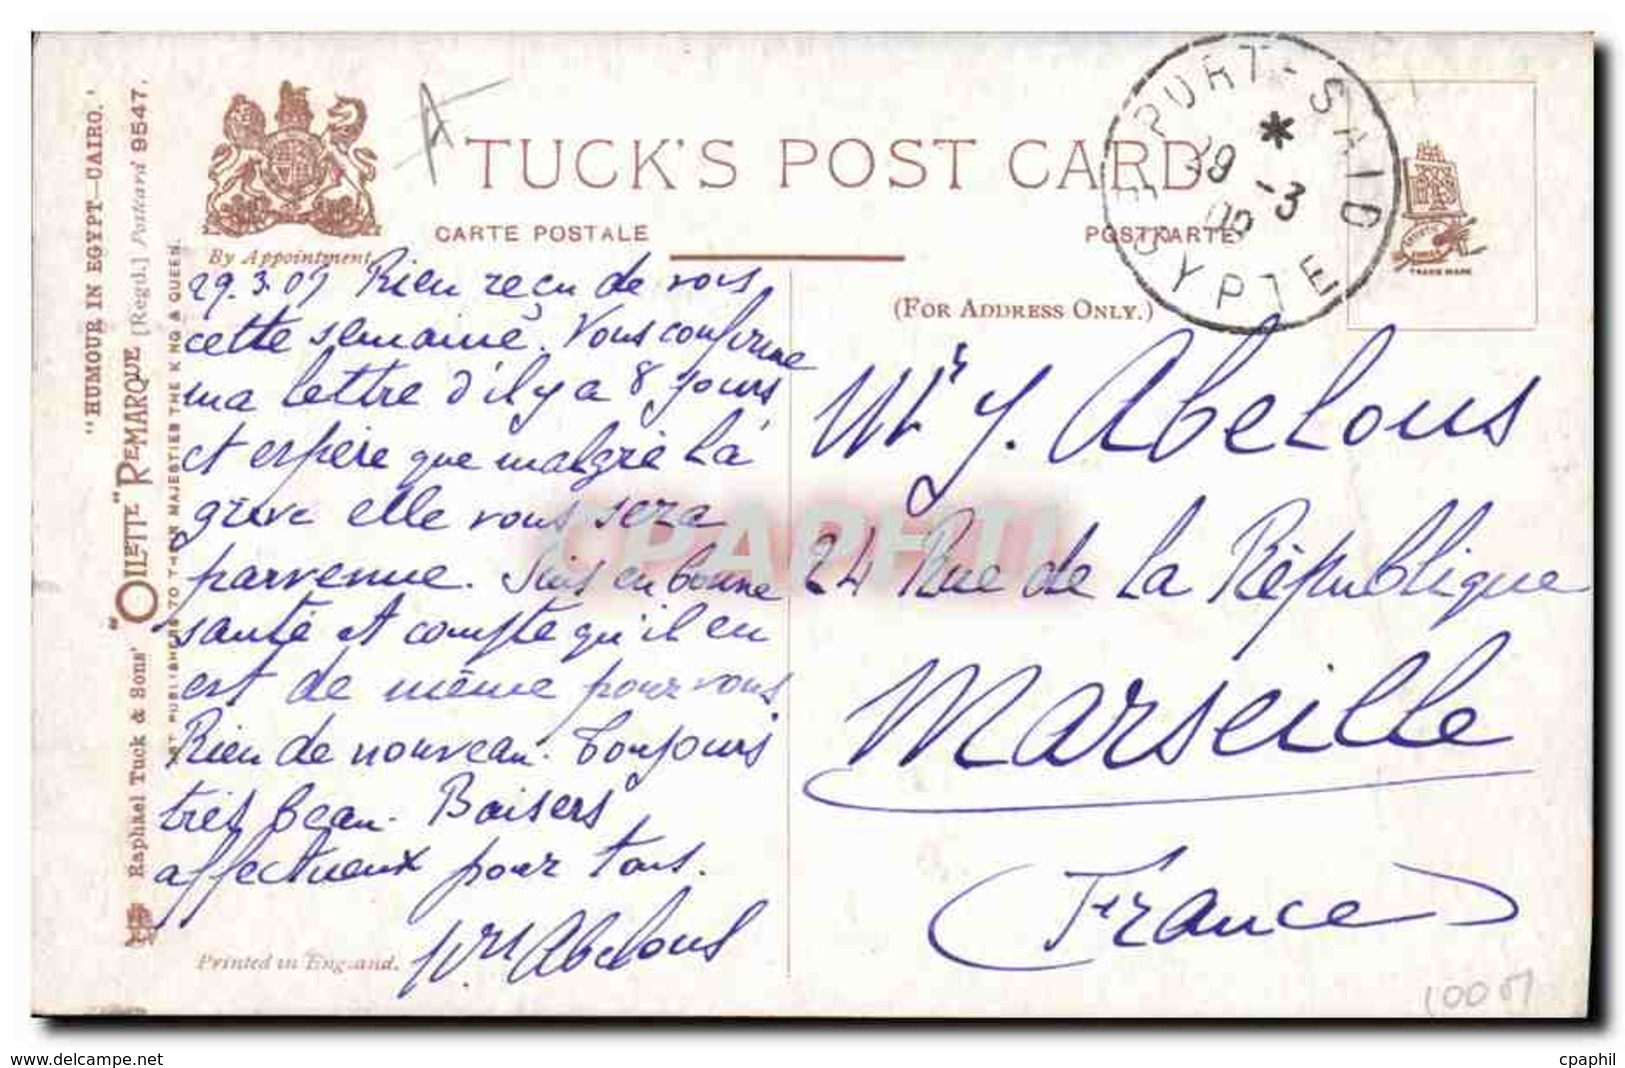 "HUMOUR IN EGYPT—CAIRO."
Raphael Tuck & Sons' "OILETTE" REMARQUE [Regd.] Postcard 9547.
ART PUBLISHERS TO THEIR MAJESTIES THE KING & QUEEN.
By Appointment.
A
TUCK'S POST CARD
CARTE POSTALE
POSTKARTE
(FOR ADDRESS ONLY.)
PORT-SAID
29 -3
EGYPTE
TRADE MARK
29.3.09 Rien reçu de vous
cette semaine. Vous confirme
ma lettre d'il y a 8 jours
et espère que malgré la
grève elle vous sera
parvenue. Suis en bonne
santé et compte qu'il en
est de même pour vous.
Rien de nouveau. Toujours
très beau. Baisers
affectueux pour tous.
Abelous
Printed in England.
Mr J. Abelous
24 Rue de la République
Marseille
(France)
CPAPHIL
www.delcampe.net
cpaphil